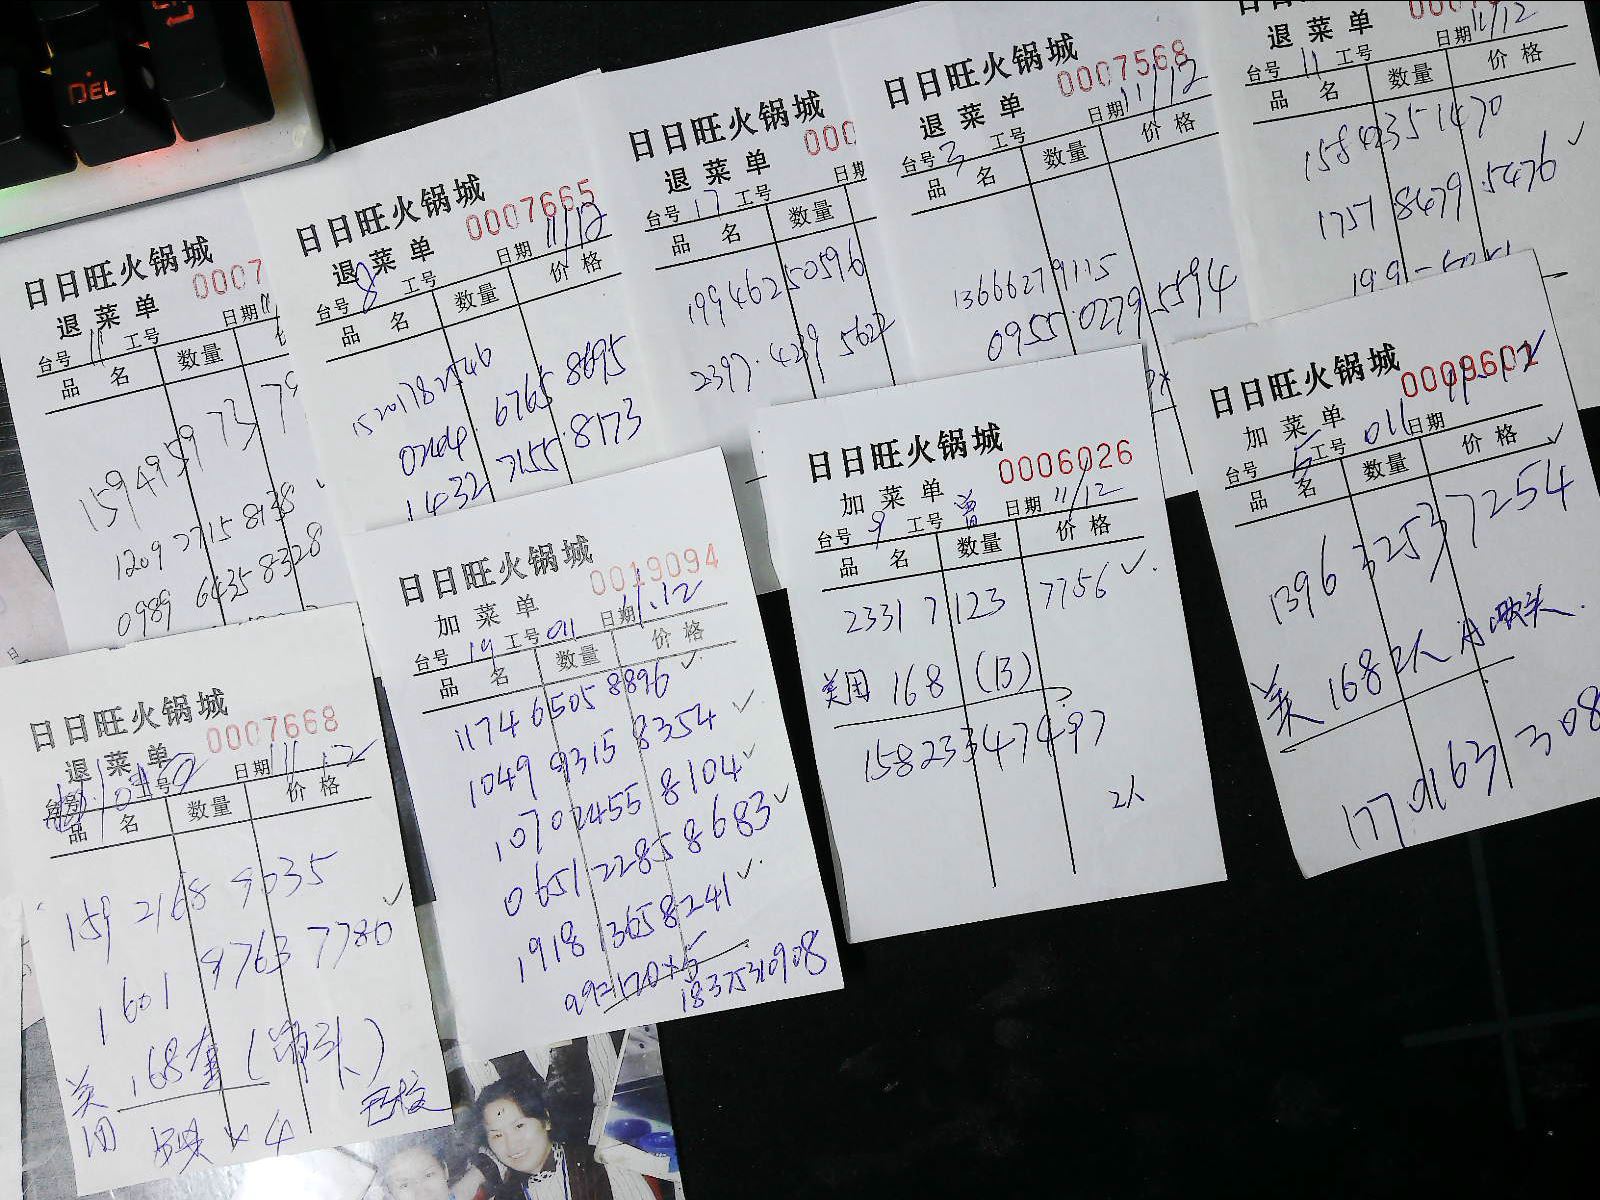 DEL
日日旺火锅城
0007
退菜单
台号 11 工号 日期
品名 数量
1209 2715 8138
0989 6435 8328
日日旺火锅城
0007665
退菜单
台号 8 工号 日期 11/12
品名 数量 价格
15201782546
6765 8695
1432 7155.8173
日日旺火锅城
000
退菜单
台号 17 工号 日期
品名 数量
19946250596
2397.4239 5622
日日旺火锅城
0007568
退菜单
台号 3 工号 日期 11/12
品名 数量 价格
13666279115
0955.0279 5594
退菜单
台号 11 工号 日期 11/12
品名 数量 价格
15842351470
1757 8479 5476
日日旺火锅城
0007668
退菜单
台号 工号 日期 11.12
品名 数量 价格
159 2168 9635
1601 9763 7786
美团 168套
日日旺火锅城
0019094
加菜单
台号 19 工号 011 日期 11.12
品名 数量 价格
1174 6505 8896
1049 9315 8354
1070 2455 8104
0651 2285 8683
1918 1365 8241
18375310908
日日旺火锅城
0006026
加菜单
台号 9 工号 曾 日期 11/12
品名 数量 价格
2331 7123 7756
美团 168 (B)
15823347497
2人
日日旺火锅城
0009601
加菜单
台号 5 工号 011 日期
品名 数量 价格
1396 3253 7254
美 168 2人
17701631308